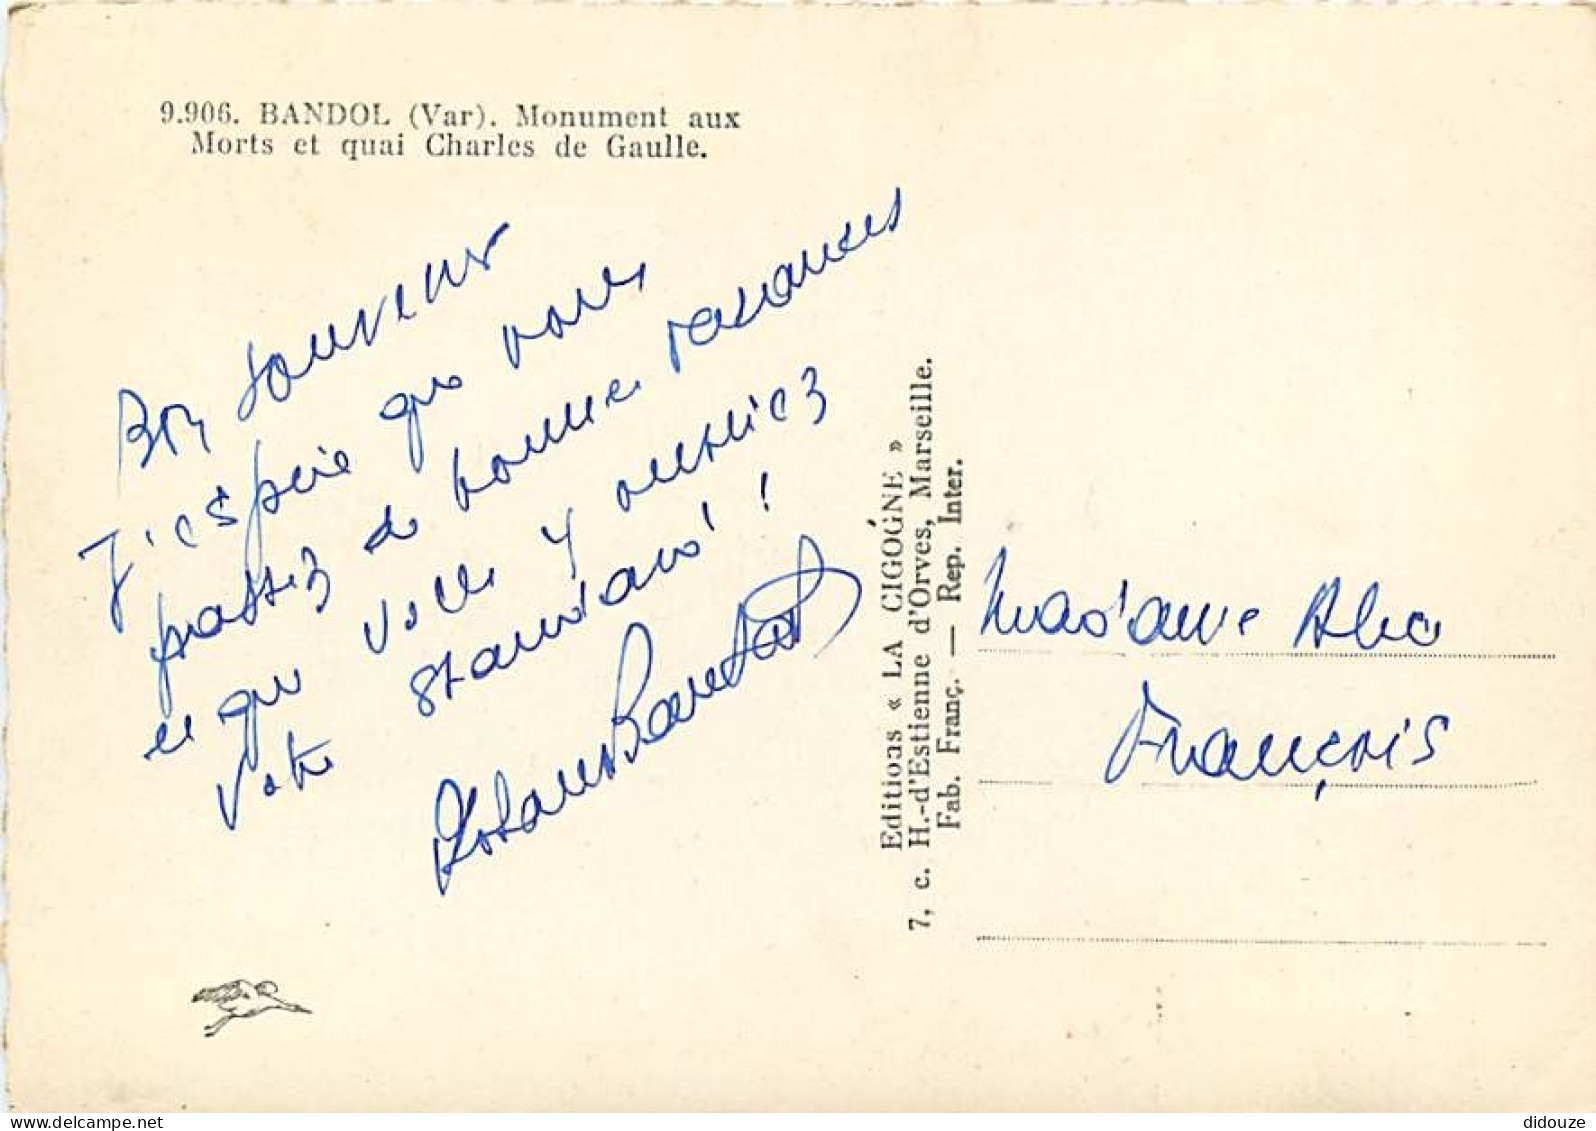 9.906. BANDOL (Var). Monument aux
Morts et quai Charles de Gaulle.
Bon souvenir
J'espère que vous
passez de bonnes vacances
et que vous y oubliez
votre standard !
Editions « LA CIGOGNE »
7, c. H.-d'Estienne d'Orves, Marseille.
Fab. Franç. — Rep. Inter.
Madame
François
www.delcampe.net
didouze